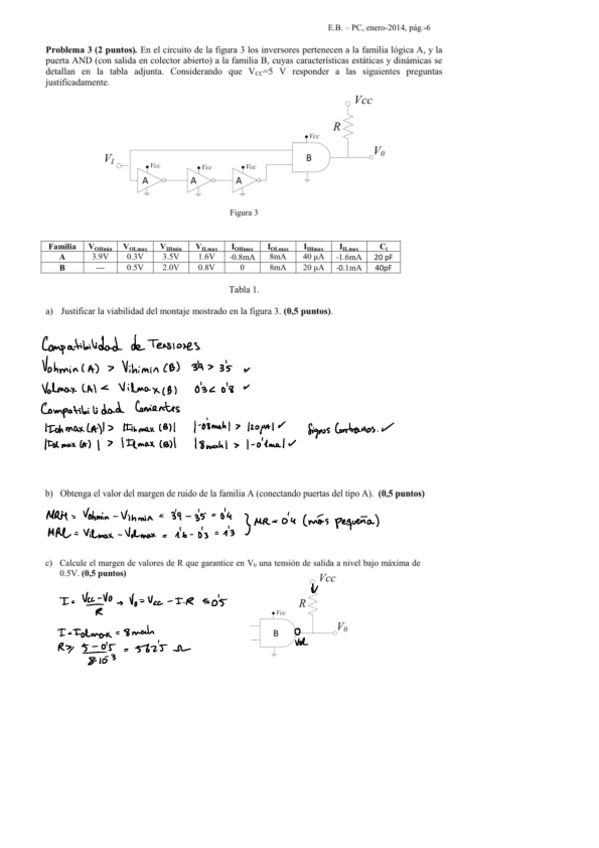 E.B. – PC, enero-2014, pág.-6
Problema 3 (2 puntos). En el circuito de la figura 3 los inversores pertenecen a la familia lógica A, y la
puerta AND (con salida en colector abierto) a la familia B, cuyas características estáticas y dinámicas se
detallan en la tabla adjunta. Considerando que VCC=5 V responder a las siguientes preguntas
justificadamente.
Vcc
R
Vcc
V0
B
VI
Vcc Vcc Vcc
A A A
Figura 3
Familia VOHmin VOLmax VIHmin VILmax IOHmax IOLmax IIHmax IILmax Ci
A 3.9V 0.3V 3.5V 1.6V -0.8mA 8mA 40 µA -1.6mA 20 pF
B --- 0.5V 2.0V 0.8V 0 8mA 20 µA -0.1mA 40pF
Tabla 1.
a) Justificar la viabilidad del montaje mostrado en la figura 3. (0,5 puntos).
Compatibilidad de Tensiones
Vohmin (A) > Vihmin (B) 3'9 > 3'5 ✓
Volmax (A) < Vilmax (B) 0'3 < 0'8 ✓
Compatibilidad Corrientes
|Iohmax (A)| > |Iihmax (B)| |-0'8mA| > |20µA| ✓ Signos Contrarios. ✓
|Iolmax (A)| > |Iilmax (B)| |8mA| > |-0'1mA| ✓
b) Obtenga el valor del margen de ruido de la familia A (conectando puertas del tipo A). (0,5 puntos)
MRH = Vohmin - Vihmin = 3'9 - 3'5 = 0'4
MRL = Vilmax - Volmax = 1'6 - 0'3 = 1'3
} MR = 0'4 (más pequeña)
c) Calcule el margen de valores de R que garantice en V0 una tensión de salida a nivel bajo máxima de
0.5V. (0,5 puntos)
I = Vcc - Vo / R → Vo = Vcc - I·R ≤ 0'5
I = Iolmax = 8mA
R ≥ 5 - 0'5 / 8·10⁻³ = 562'5 Ω
Vcc
R
Vcc
B
Vol
V0